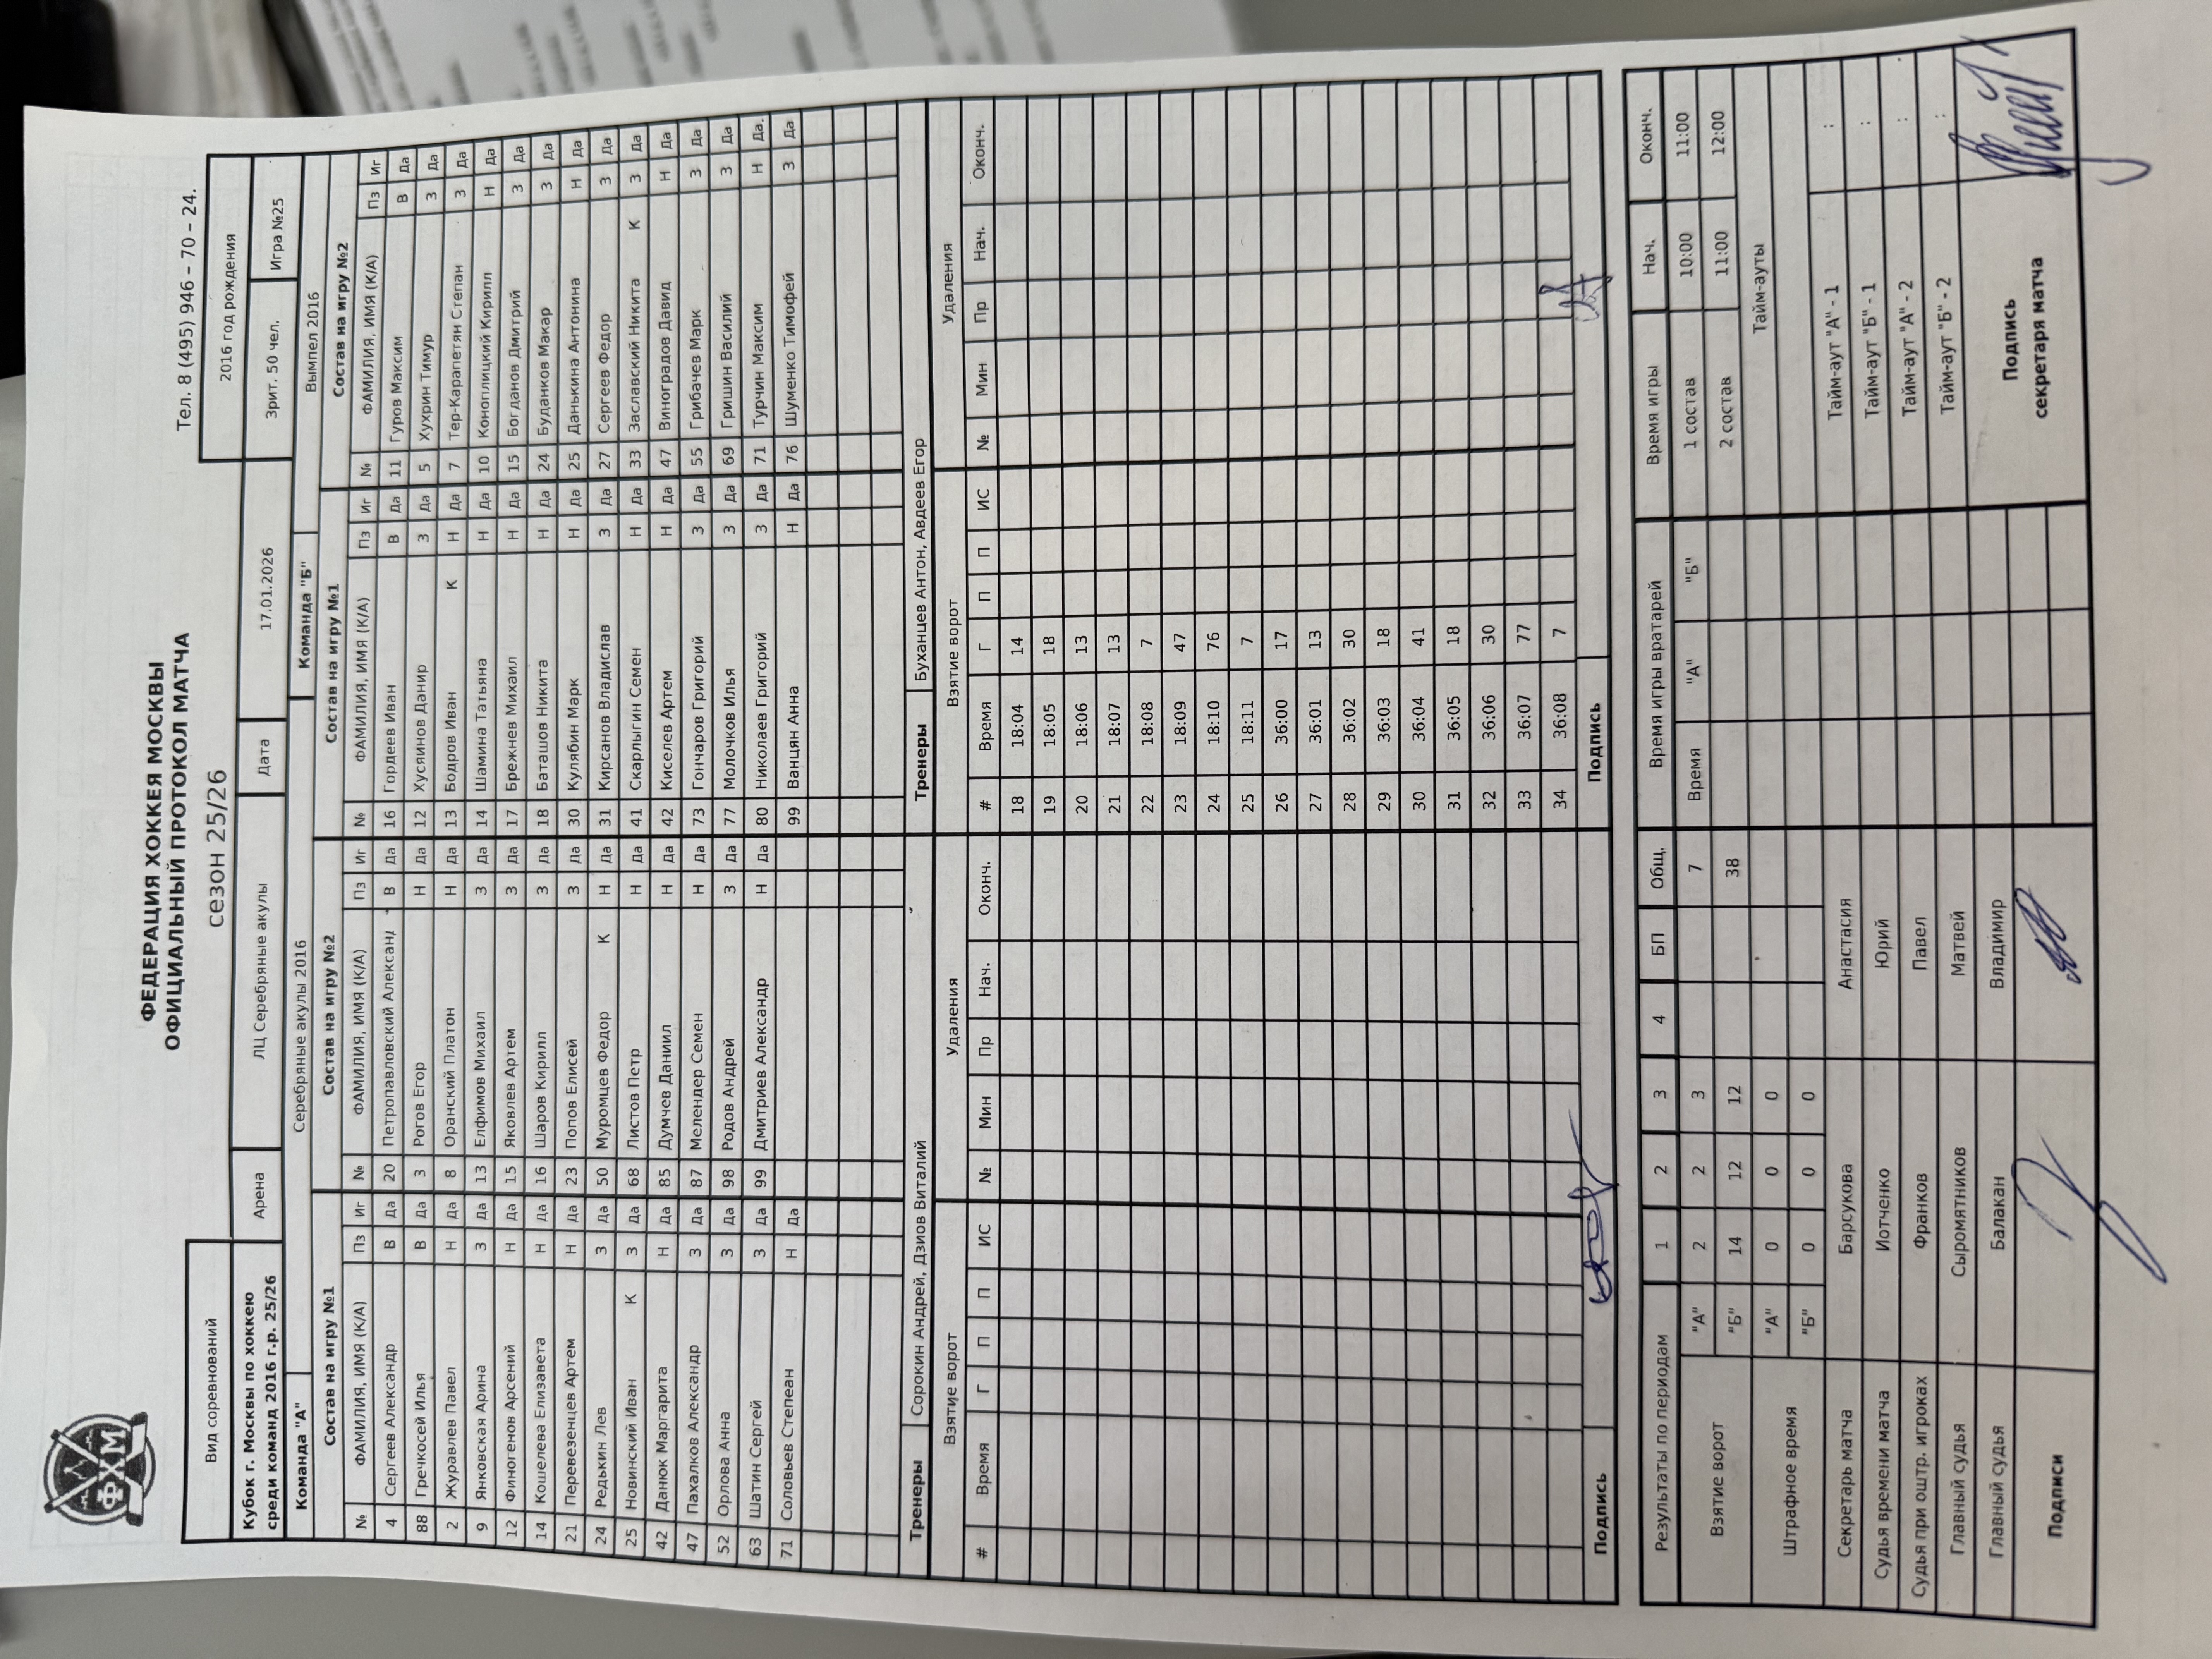 ФХМ
ФЕДЕРАЦИЯ ХОККЕЯ МОСКВЫ
ОФИЦИАЛЬНЫЙ ПРОТОКОЛ МАТЧА
сезон 25/26
Тел. 8 (495) 946 – 70 – 24.
Вид соревнований 2016 год рождения
Кубок г. Москвы по хоккею среди команд 2016 г.р. 25/26 Арена ЛЦ Серебряные акулы Дата 17.01.2026 Зрит. 50 чел. Игра №25
Команда "А" Серебряные акулы 2016 Команда "Б" Вымпел 2016
Состав на игру №1 Состав на игру №2 Состав на игру №1 Состав на игру №2
№ ФАМИЛИЯ, ИМЯ (К/А) Пз Иг № ФАМИЛИЯ, ИМЯ (К/А) Пз Иг № ФАМИЛИЯ, ИМЯ (К/А) Пз Иг № ФАМИЛИЯ, ИМЯ (К/А) Пз Иг
4 Сергеев Александр В Да 20 Петропавловский Александ В Да 16 Гордеев Иван В Да 11 Гуров Максим В Да
88 Гречкосей Илья В Да 3 Рогов Егор Н Да 12 Хусяинов Данир З Да 5 Хухрин Тимур З Да
2 Журавлев Павел Н Да 8 Оранский Платон Н Да 13 Бодров Иван К Н Да 7 Тер-Карапетян Степан З Да
9 Янковская Арина З Да 13 Елфимов Михаил З Да 14 Шамина Татьяна Н Да 10 Коноплицкий Кирилл Н Да
12 Финогенов Арсений Н Да 15 Яковлев Артем З Да 17 Брежнев Михаил Н Да 15 Богданов Дмитрий З Да
14 Кошелева Елизавета Н Да 16 Шаров Кирилл З Да 18 Баташов Никита Н Да 24 Буданков Макар З Да
21 Перевезенцев Артем Н Да 23 Попов Елисей З Да 30 Кулябин Марк Н Да 25 Данькина Антонина Н Да
24 Редькин Лев З Да 50 Муромцев Федор К Н Да 31 Кирсанов Владислав З Да 27 Сергеев Федор З Да
25 Новинский Иван К З Да 68 Листов Петр Н Да 41 Скарлыгин Семен Н Да 33 Заславский Никита К З Да
42 Данюк Маргарита Н Да 85 Думчев Даниил Н Да 42 Киселев Артем Н Да 47 Виноградов Давид Н Да
47 Пахалков Александр З Да 87 Мелендер Семен Н Да 73 Гончаров Григорий З Да 55 Грибачев Марк З Да
52 Орлова Анна З Да 98 Родов Андрей З Да 77 Молочков Илья З Да 69 Гришин Василий З Да
63 Шатин Сергей З Да 99 Дмитриев Александр Н Да 80 Николаев Григорий З Да 71 Турчин Максим Н Да.
71 Соловьев Степеан Н Да 99 Ванцян Анна Н Да 76 Шуменко Тимофей З Да
Тренеры Сорокин Андрей, Дзиов Виталий Тренеры Буханцев Антон, Авдеев Егор
Взятие ворот Удаления Взятие ворот Удаления
# Время Г П П ИС № Мин Пр Нач. Оконч. # Время Г П П ИС № Мин Пр Нач. Оконч.
18 18:04 14
19 18:05 18
20 18:06 13
21 18:07 13
22 18:08 7
23 18:09 47
24 18:10 76
25 18:11 7
26 36:00 17
27 36:01 13
28 36:02 30
29 36:03 18
30 36:04 41
31 36:05 18
32 36:06 30
33 36:07 77
34 36:08 7
Подпись Подпись
Результаты по периодам 1 2 3 4 БП Общ. Время игры вратарей Время игры Нач. Оконч.
Взятие ворот "А" 2 2 3 7 Время "А" "Б" 1 состав 10:00 11:00
"Б" 14 12 12 38 2 состав 11:00 12:00
Штрафное время "А" 0 0 0 Тайм-ауты
"Б" 0 0 0
Секретарь матча Барсукова Анастасия Тайм-аут "А" - 1 :
Судья времени матча Иотченко Юрий Тайм-аут "Б" - 1 :
Судья при оштр. игроках Франков Павел Тайм-аут "А" - 2 :
Главный судья Сыромятников Матвей Тайм-аут "Б" - 2 :
Главный судья Балакан Владимир Подпись секретаря матча
Подписи